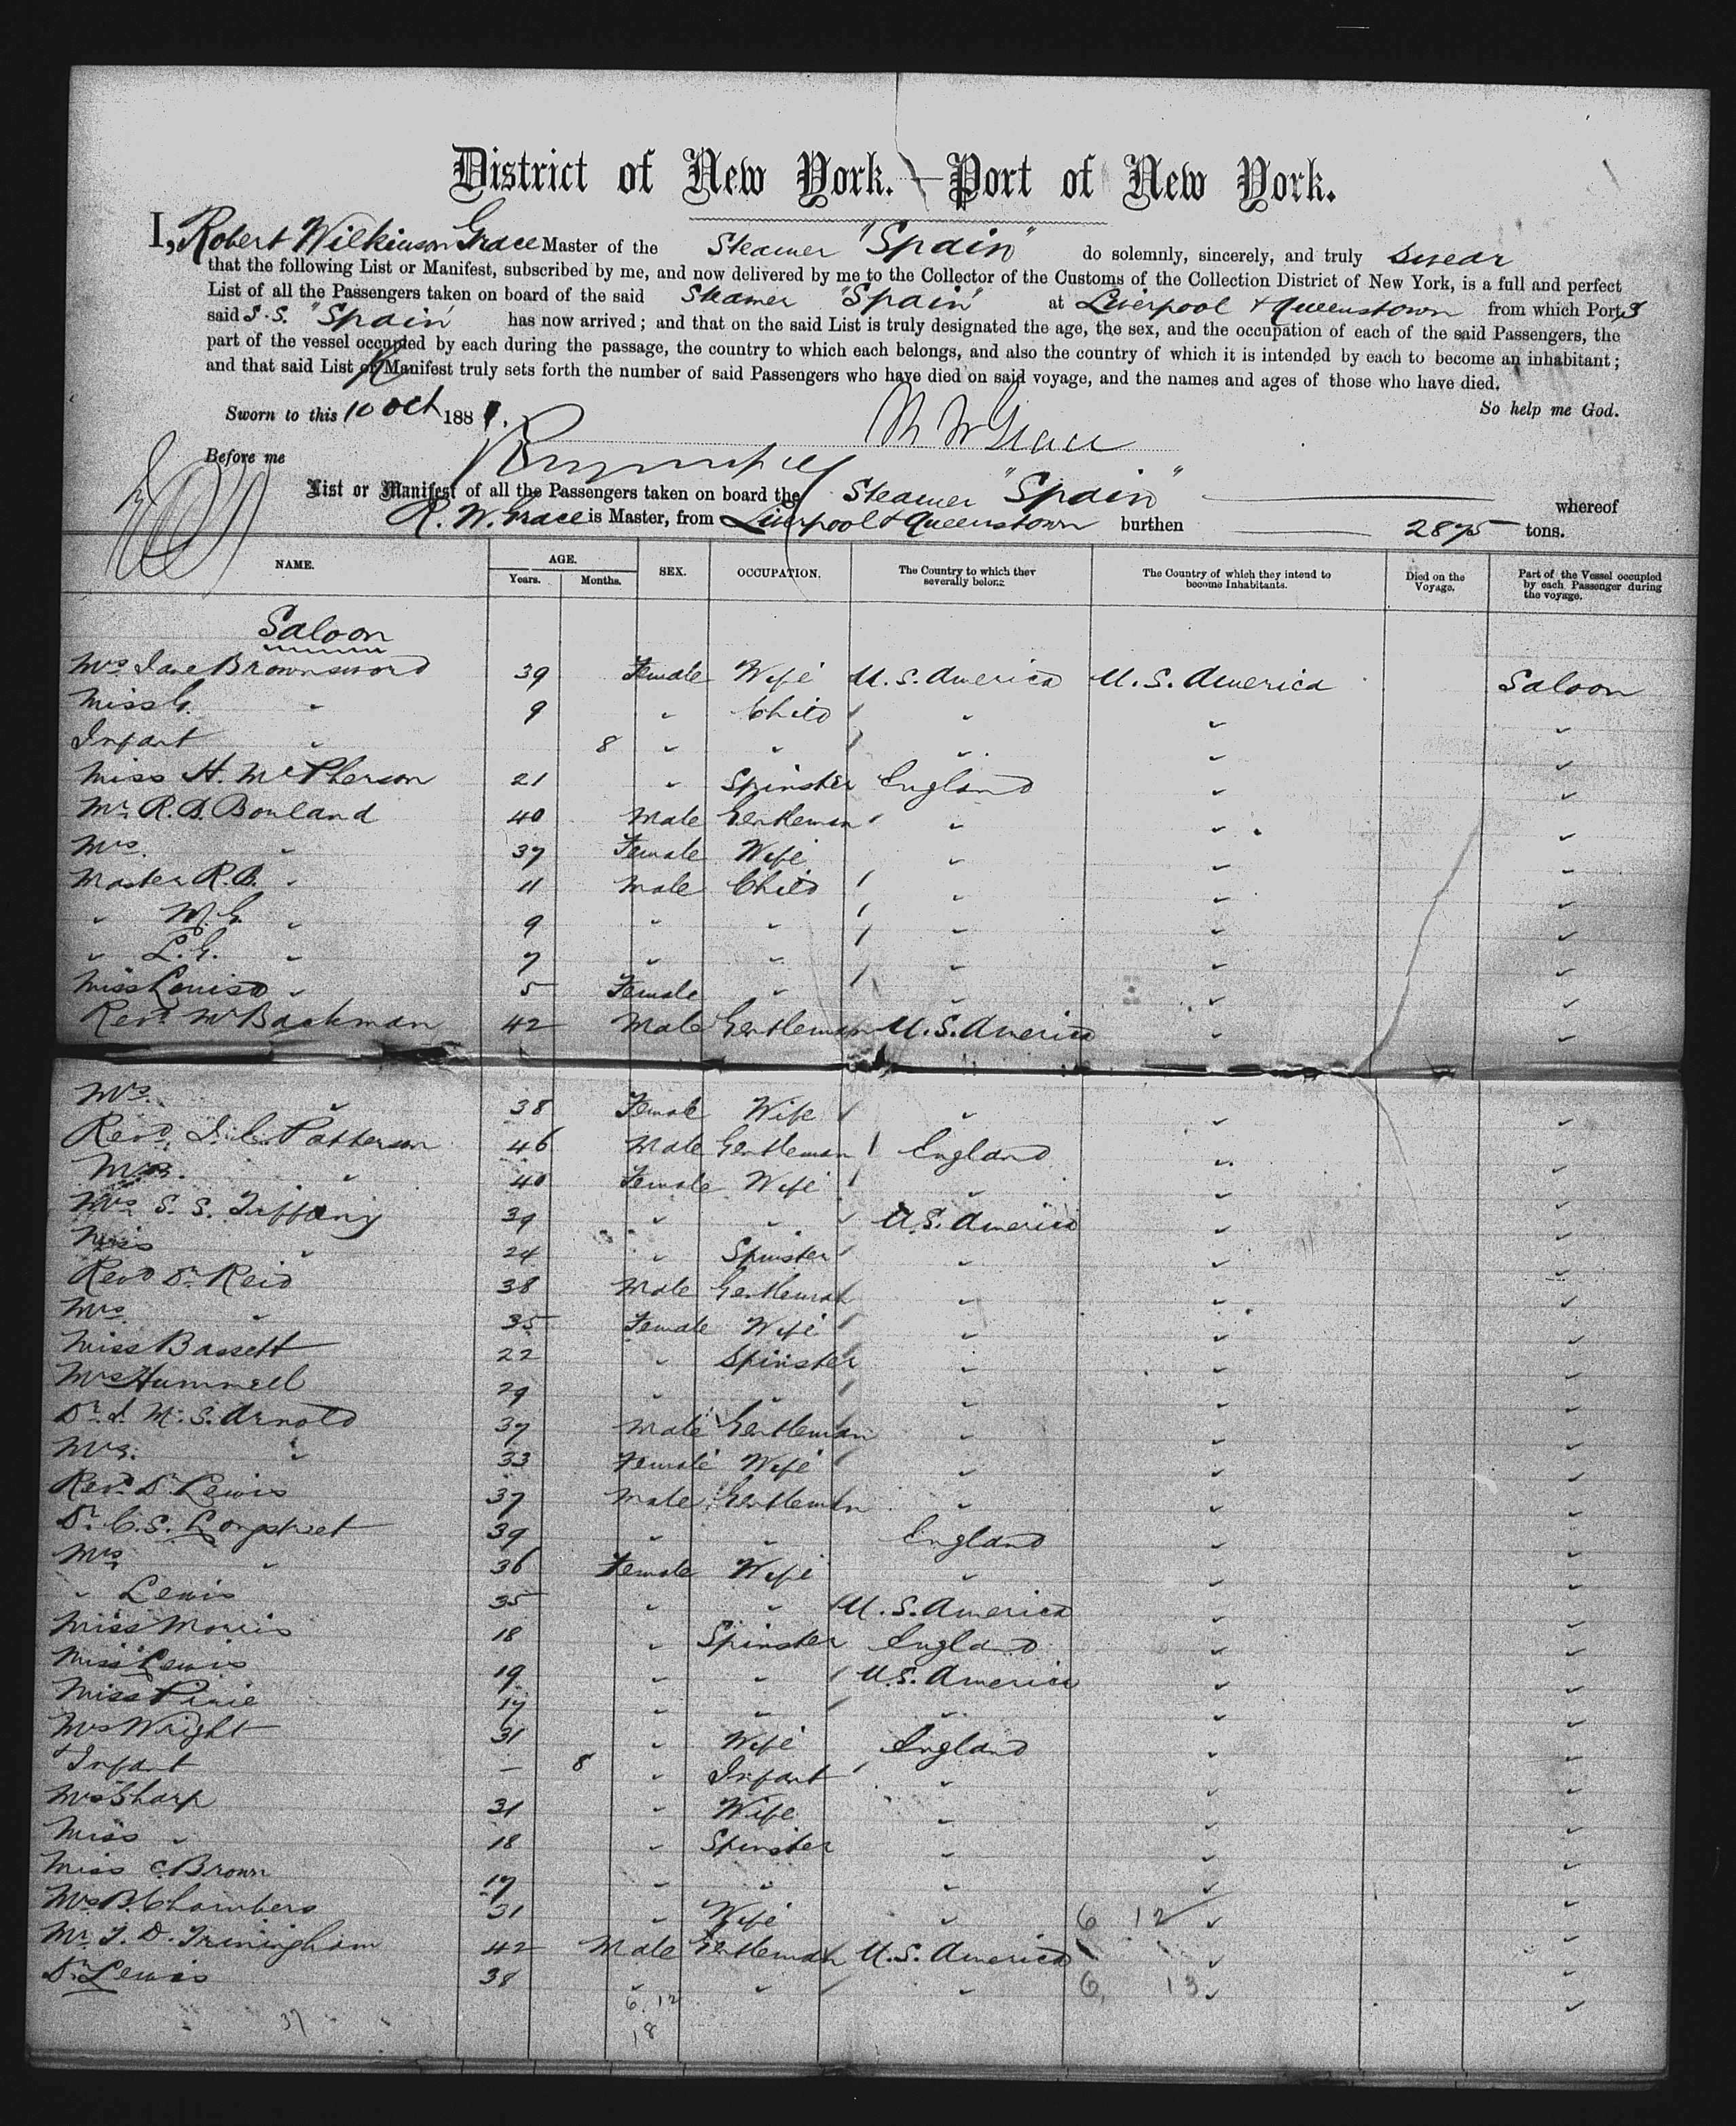 District of New York.—Port of New York.
I, Robert Wilkinson Grace Master of the Steamer "Spain" do solemnly, sincerely, and truly swear
that the following List or Manifest, subscribed by me, and now delivered by me to the Collector of the Customs of the Collection District of New York, is a full and perfect
List of all the Passengers taken on board of the said Steamer "Spain" at Liverpool & Queenstown from which Port s
said S.S. "Spain" has now arrived; and that on the said List is truly designated the age, the sex, and the occupation of each of the said Passengers, the
part of the vessel occupied by each during the passage, the country to which each belongs, and also the country of which it is intended by each to become an inhabitant;
and that said List or Manifest truly sets forth the number of said Passengers who have died on said voyage, and the names and ages of those who have died.
So help me God.
Sworn to this 10 Oct 1881.
R W Grace
Before me
List or Manifest of all the Passengers taken on board the Steamer "Spain" whereof
R. W. Grace is Master, from Liverpool & Queenstown burthen 2875 tons.
NAME. AGE. Years. Months. SEX. OCCUPATION. The Country to which they severally belong. The Country of which they intend to become Inhabitants. Died on the Voyage. Part of the Vessel occupied by each Passenger during the voyage.
Saloon
Mrs Jane Brownsword 39 Female Wife U.S. America U.S. America Saloon
Miss G. " 9 " Child " " "
Infant " 8 " " " " "
Miss H. McPherson 21 " Spinster England " "
Mr R.B. Bouland 40 Male Gentleman " " "
Mrs " 37 Female Wife " " "
Master R.B. " 11 Male Child " " "
" M.G. " 9 " " " " "
" L.G. " 7 " " " " "
Miss Louisa " 5 Female " " " "
Revd Mr Backman 42 Male Gentleman U.S. America " "
Mrs. " 38 Female Wife " " "
Revd. J.C. Patterson 46 Male Gentleman England " "
Mrs. " 40 Female Wife " " "
Mrs S. S. Tiffany 39 " " U.S. America " "
Miss " 24 " Spinster " " "
Revd Dr Reid 38 Male Gentleman " " "
Mrs. " 35 Female Wife " " "
Miss Bassett 22 " Spinster " " "
Mrs Hummell 29 " " " " "
Dr. J. M. S. Arnold 37 Male Gentleman " " "
Mrs. " 33 Female Wife " " "
Revd. Dr Lewis 37 Male Gentleman " " "
Dr. C.S. Longstreet 39 " " England " "
Mrs " 36 Female Wife " " "
" Lewis 35 " " U.S. America " "
Miss Morris 18 " Spinster England " "
Miss Lewis 19 " " U.S. America " "
Miss Pirie 17 " " " " "
Mrs Wright 31 " Wife England " "
& Infant — 8 " Infant " " "
Mrs Sharp 31 " Wife " " "
Miss " 18 " Spinster " " "
Miss C Brown 17 " " " " "
Mrs B. Chambers 31 " Wife " 6 12 " "
Mr. T. D. Triningham 42 Male Gentleman U.S. America " "
Dr. Lewis 38 " " " 6, 13 " "
6.12
37 18